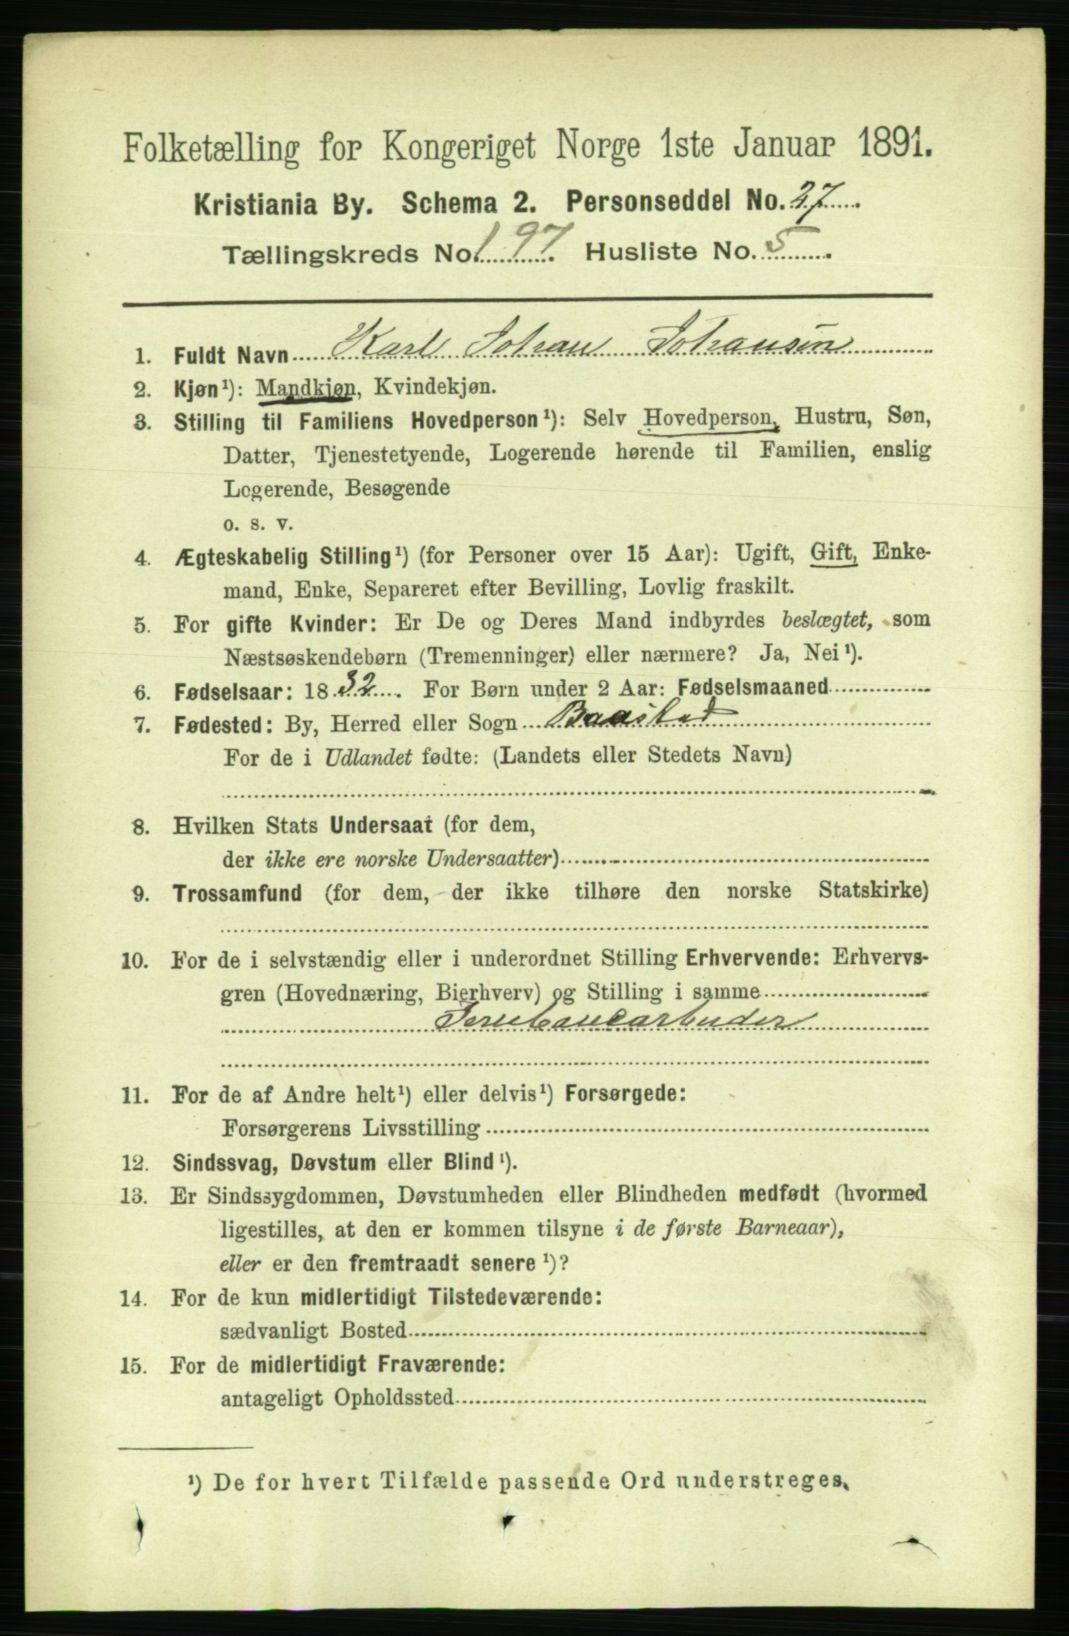 Folketælling for Kongeriget Norge 1ste Januar 1891.
Kristiania By. Schema 2. Personseddel No. 27
Tællingskreds No. 197. Husliste No. 5.
1. Fuldt Navn Karl Johan Johansen
2. Kjøn¹): Mandkjøn, Kvindekjøn.
3. Stilling til Familiens Hovedperson¹): Selv Hovedperson, Hustru, Søn,
Datter, Tjenestetyende, Logerende hørende til Familien, enslig
Logerende, Besøgende
o. s. v.
4. Ægteskabelig Stilling¹) (for Personer over 15 Aar): Ugift, Gift, Enke-
mand, Enke, Separeret efter Bevilling, Lovlig fraskilt.
5. For gifte Kvinder: Er De og Deres Mand indbyrdes beslægtet, som
Næstsøskendebørn (Tremenninger) eller nærmere? Ja, Nei¹).
6. Fødselsaar: 1832. For Børn under 2 Aar: Fødselsmaaned
7. Fødested: By, Herred eller Sogn Baastad
For de i Udlandet fødte: (Landets eller Stedets Navn)
8. Hvilken Stats Undersaat (for dem,
der ikke ere norske Undersaatter)
9. Trossamfund (for dem, der ikke tilhøre den norske Statskirke)
10. For de i selvstændig eller i underordnet Stilling Erhvervende: Erhvervs-
gren (Hovednæring, Bierhverv) og Stilling i samme
Jernbanearbeider
11. For de af Andre helt¹) eller delvis¹) Forsørgede:
Forsørgerens Livsstilling
12. Sindssvag, Døvstum eller Blind¹).
13. Er Sindssygdommen, Døvstumheden eller Blindheden medfødt (hvormed
ligestilles, at den er kommen tilsyne i de første Barneaar),
eller er den fremtraadt senere¹)?
14. For de kun midlertidigt Tilstedeværende:
sædvanligt Bosted
15. For de midlertidigt Fraværende:
antageligt Opholdssted
¹) De for hvert Tilfælde passende Ord understreges.